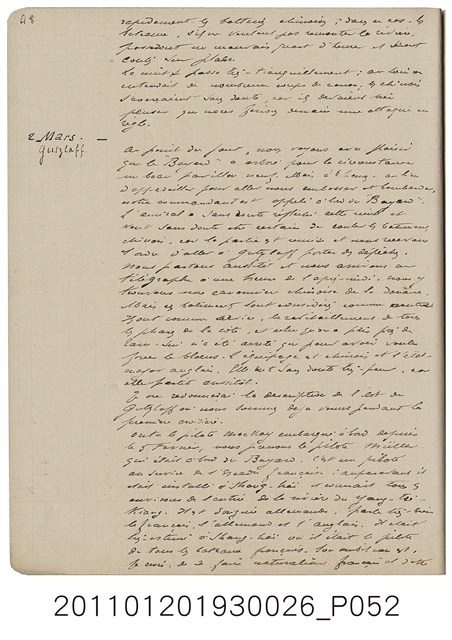 98
rapidement les batteries chinoises ; dans ce cas, les
bateaux, s'ils ne veulent pas remonter la rivière,
passeront un mauvais quart d'heure et seront
coulés sur place.
La nuit se passe très-tranquillement ; au loin on
entendait de nombreux coups de canon ; les chinois
s'exerçaient sans doute, car ils devaient bien
penser que nous ferions demain une attaque en
règle.
2 Mars. —
Gutzlaff.
Au point du jour, nous voyons avec plaisir
que le "Bayard" a arboré pour la circonstance
un beau pavillon neuf. Mais à 8 heures, au lieu
d'appareiller pour aller nous embosser et bombarder,
notre commandant est appelé à bord du "Bayard".
L'amiral a sans doute réfléchi cette nuit et
veut sans doute être certain de couler les bâtiments
chinois, car la partie est remise et nous recevons
l'ordre d'aller à Gutzlaff porter des dépêches.
Nous partons aussitôt et nous arrivons au
télégraphe à une heure de l'après-midi ; nous y
trouvons une canonnière chinoise de la douane.
Mais ces bâtiments sont considérés comme neutres
ayant comme service, le ravitaillement de tous
les phares de la côte, et celui qu'on a pris près de
n'a été arrêté que pour avoir voulu
forcer le blocus. L'équipage est chinois et l'état-
major anglais. Elle eut sans doute très-peur, car
elle partit aussitôt.
Je ne reviendrai la description de l'îlot de
Gutzlaff où nous sommes déjà venus pendant la
première croisière.
Outre le pilote Mackay embarqué à bord depuis
le 5 février, nous prenons le pilote Müller
qui était à bord du Bayard. C'est un pilote
au service de l'Escadre française ; auparavant il
était installé à Shang-haï et connaît tous les
environs de l'entrée de la rivière du Yang-tsé-
Kiang. Il est d'origine allemande. Parle très-bien
le français, l'allemand et l'anglais. Il était
très-estimé à Shang-haï où il était le pilote
de tous les bateaux français. Son ambition est,
je crois, de se faire naturaliser français et d'être
201101201930026_P052